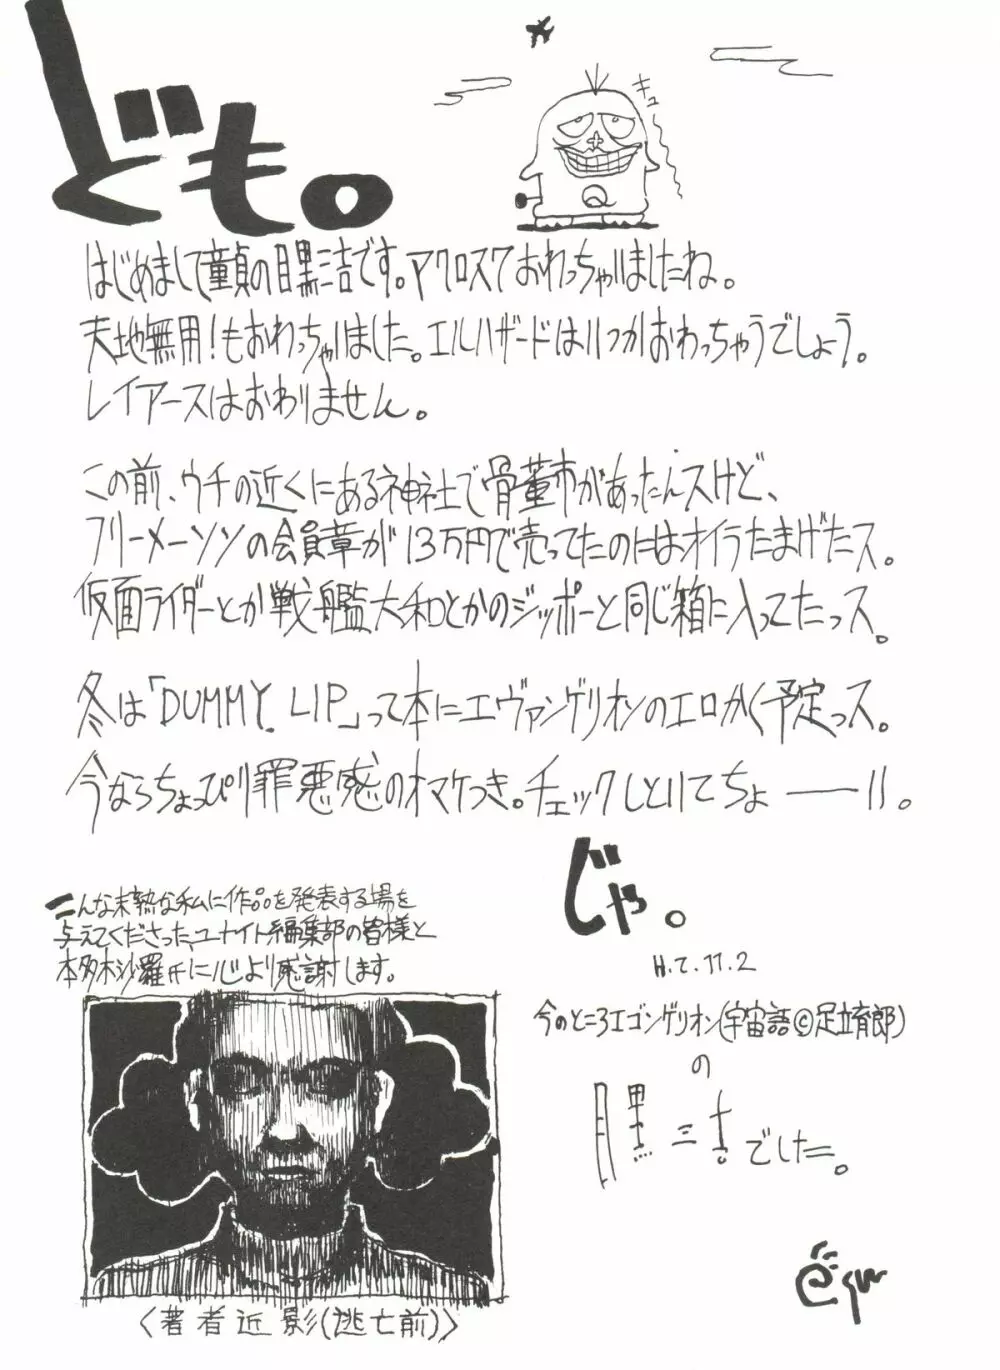 ども。
キュ
Q
はじめまして童貞の目黒三吉です。マクロス7おわっちゃいましたね。
天地無用!もおわっちゃいました。エルハザードはいつかおわっちゃうでしょう。
レイアースはおわりません。
この前、ウチの近くにある神社で骨董市があったんスけど、
フリーメーソンの会員章が13万円で売ってたのにはオイラたまげたス。
仮面ライダーとか戦艦大和とかのジッポーと同じ箱に入ってたっス。
冬は「DUMMY LIP」って本にエヴァンゲリオンのエロかく予定っス。
今ならちょっぴり罪悪感のオマケつき。チェックしといてちょーーい。
じゃ。
こんな未熟な私に作品を発表する場を
与えてくださった、ユナイト編集部の皆様と
本多木沙羅氏に心より感謝します。
H.7.11.2
今のところエゴンゲリオン(宇宙語©足立育郎)
の
目黒三吉でした。
〈著者近影(逃亡前)〉